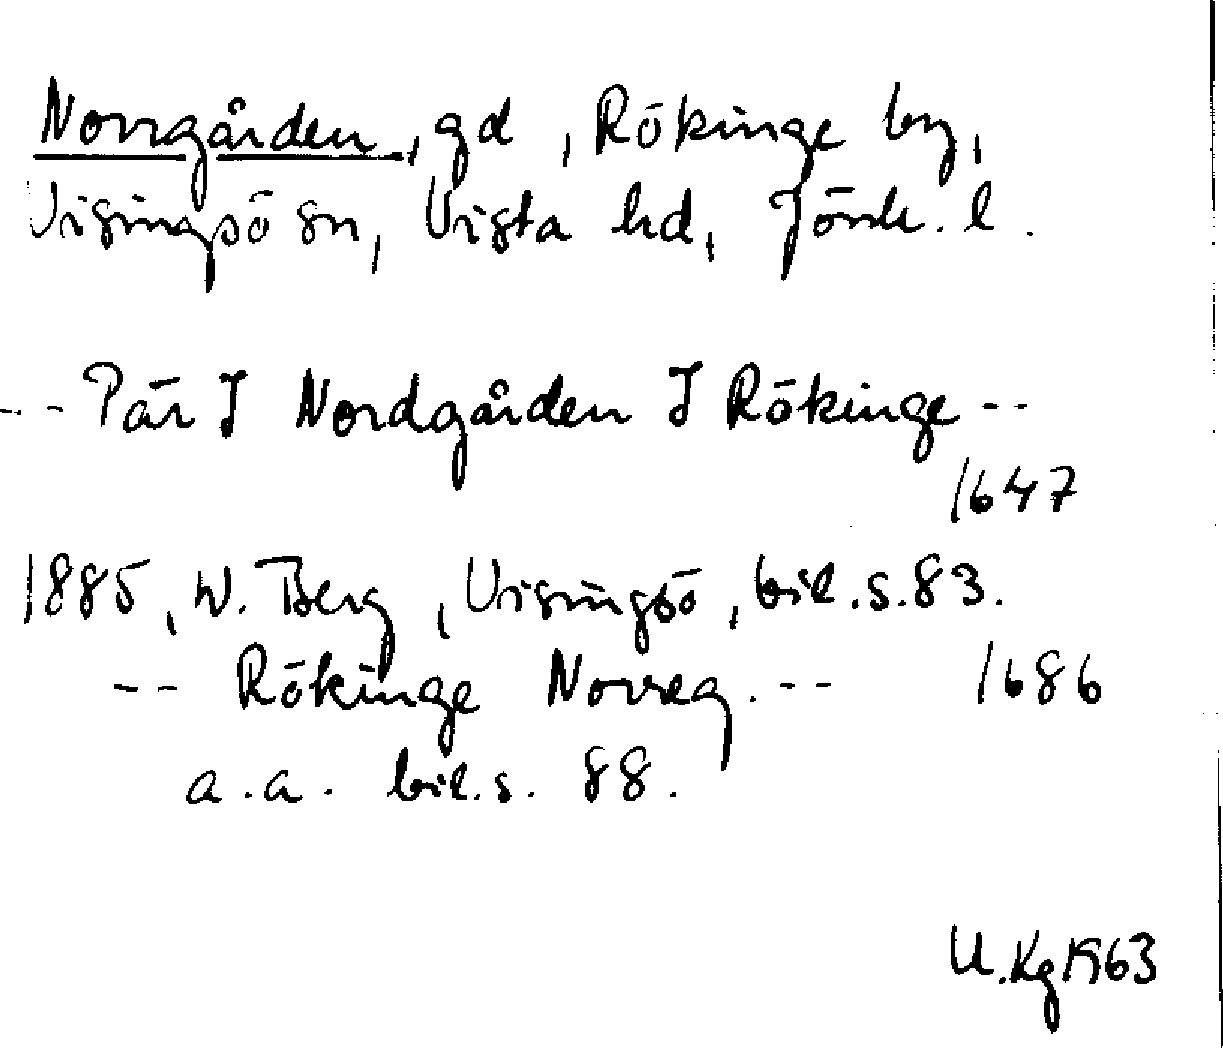 Norrgården, gd, Rökinge by,
Visingsö sn, Vista hd, Jönk. l.
-- Pär J Nordgården J Rökinge --
1647
1885, W. Berg, Visingsö, bil. s. 83.
-- Rökinge Norreg. -- 1686
a.a. bil. s. 88.
U. Kg 1963